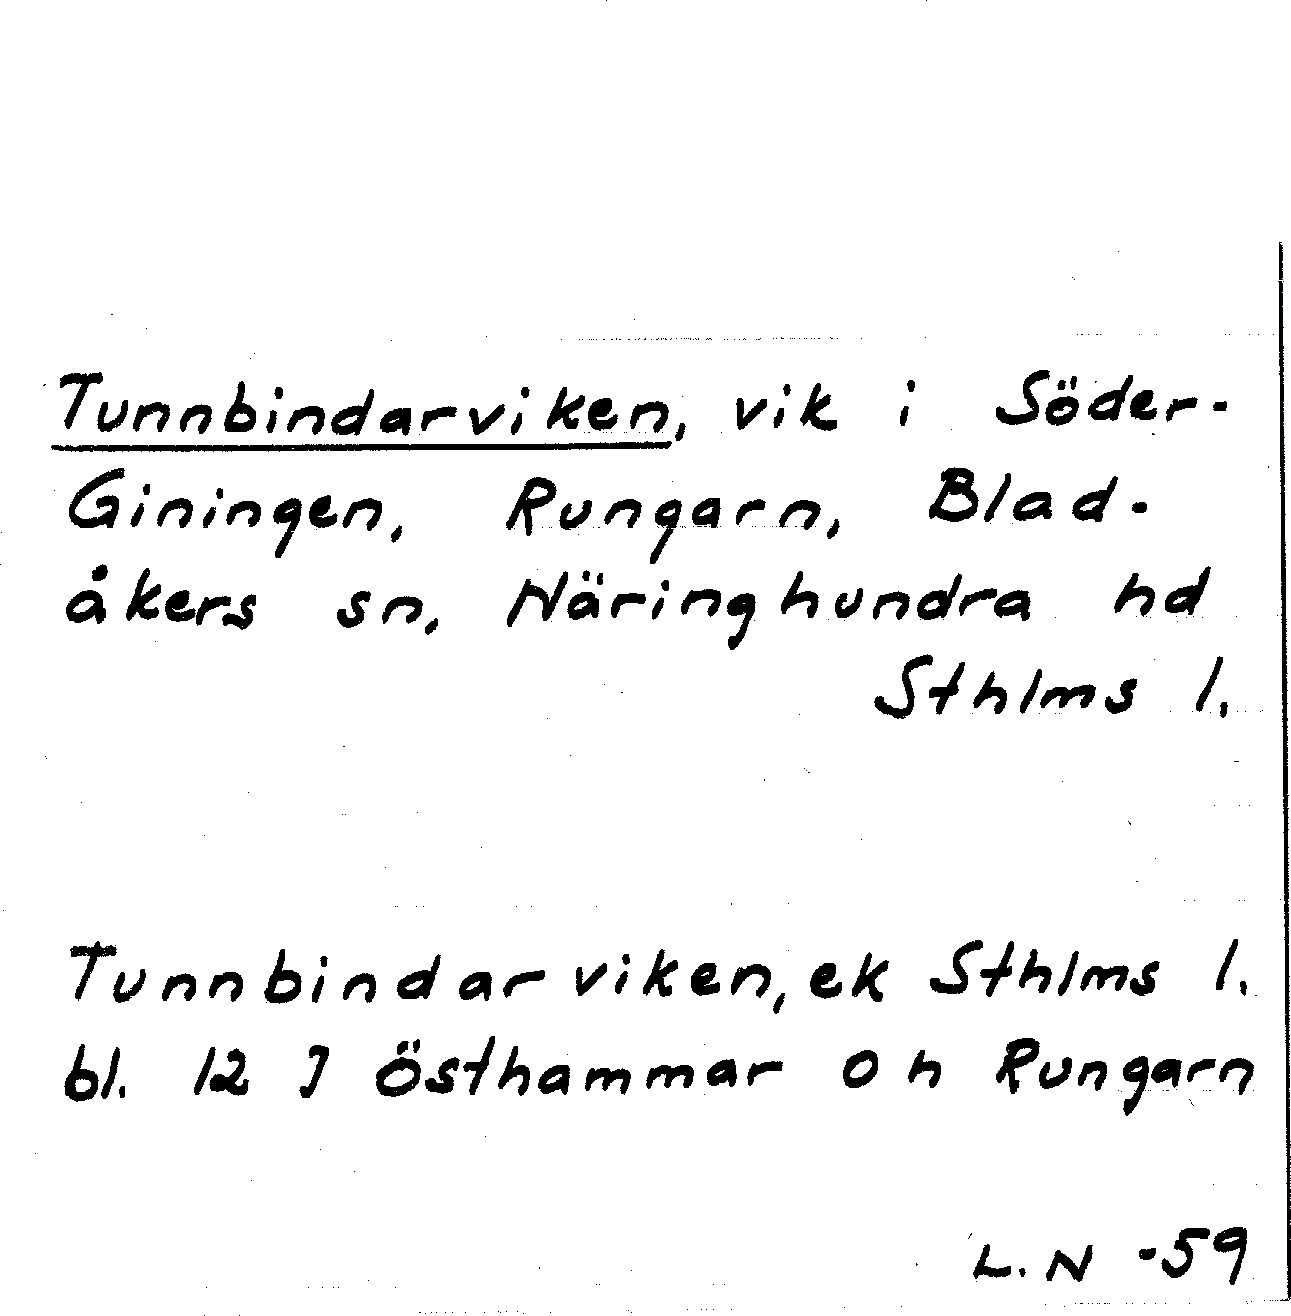 Tunnbindarviken, vik i Söder-
Giningen, Rungarn, Blad-
åkers sn, Näringhundra hd
Sthlms l.
Tunnbindarviken, ek Sthlms l.
bl. 12 J Östhammar o h Rungarn
L.N -59